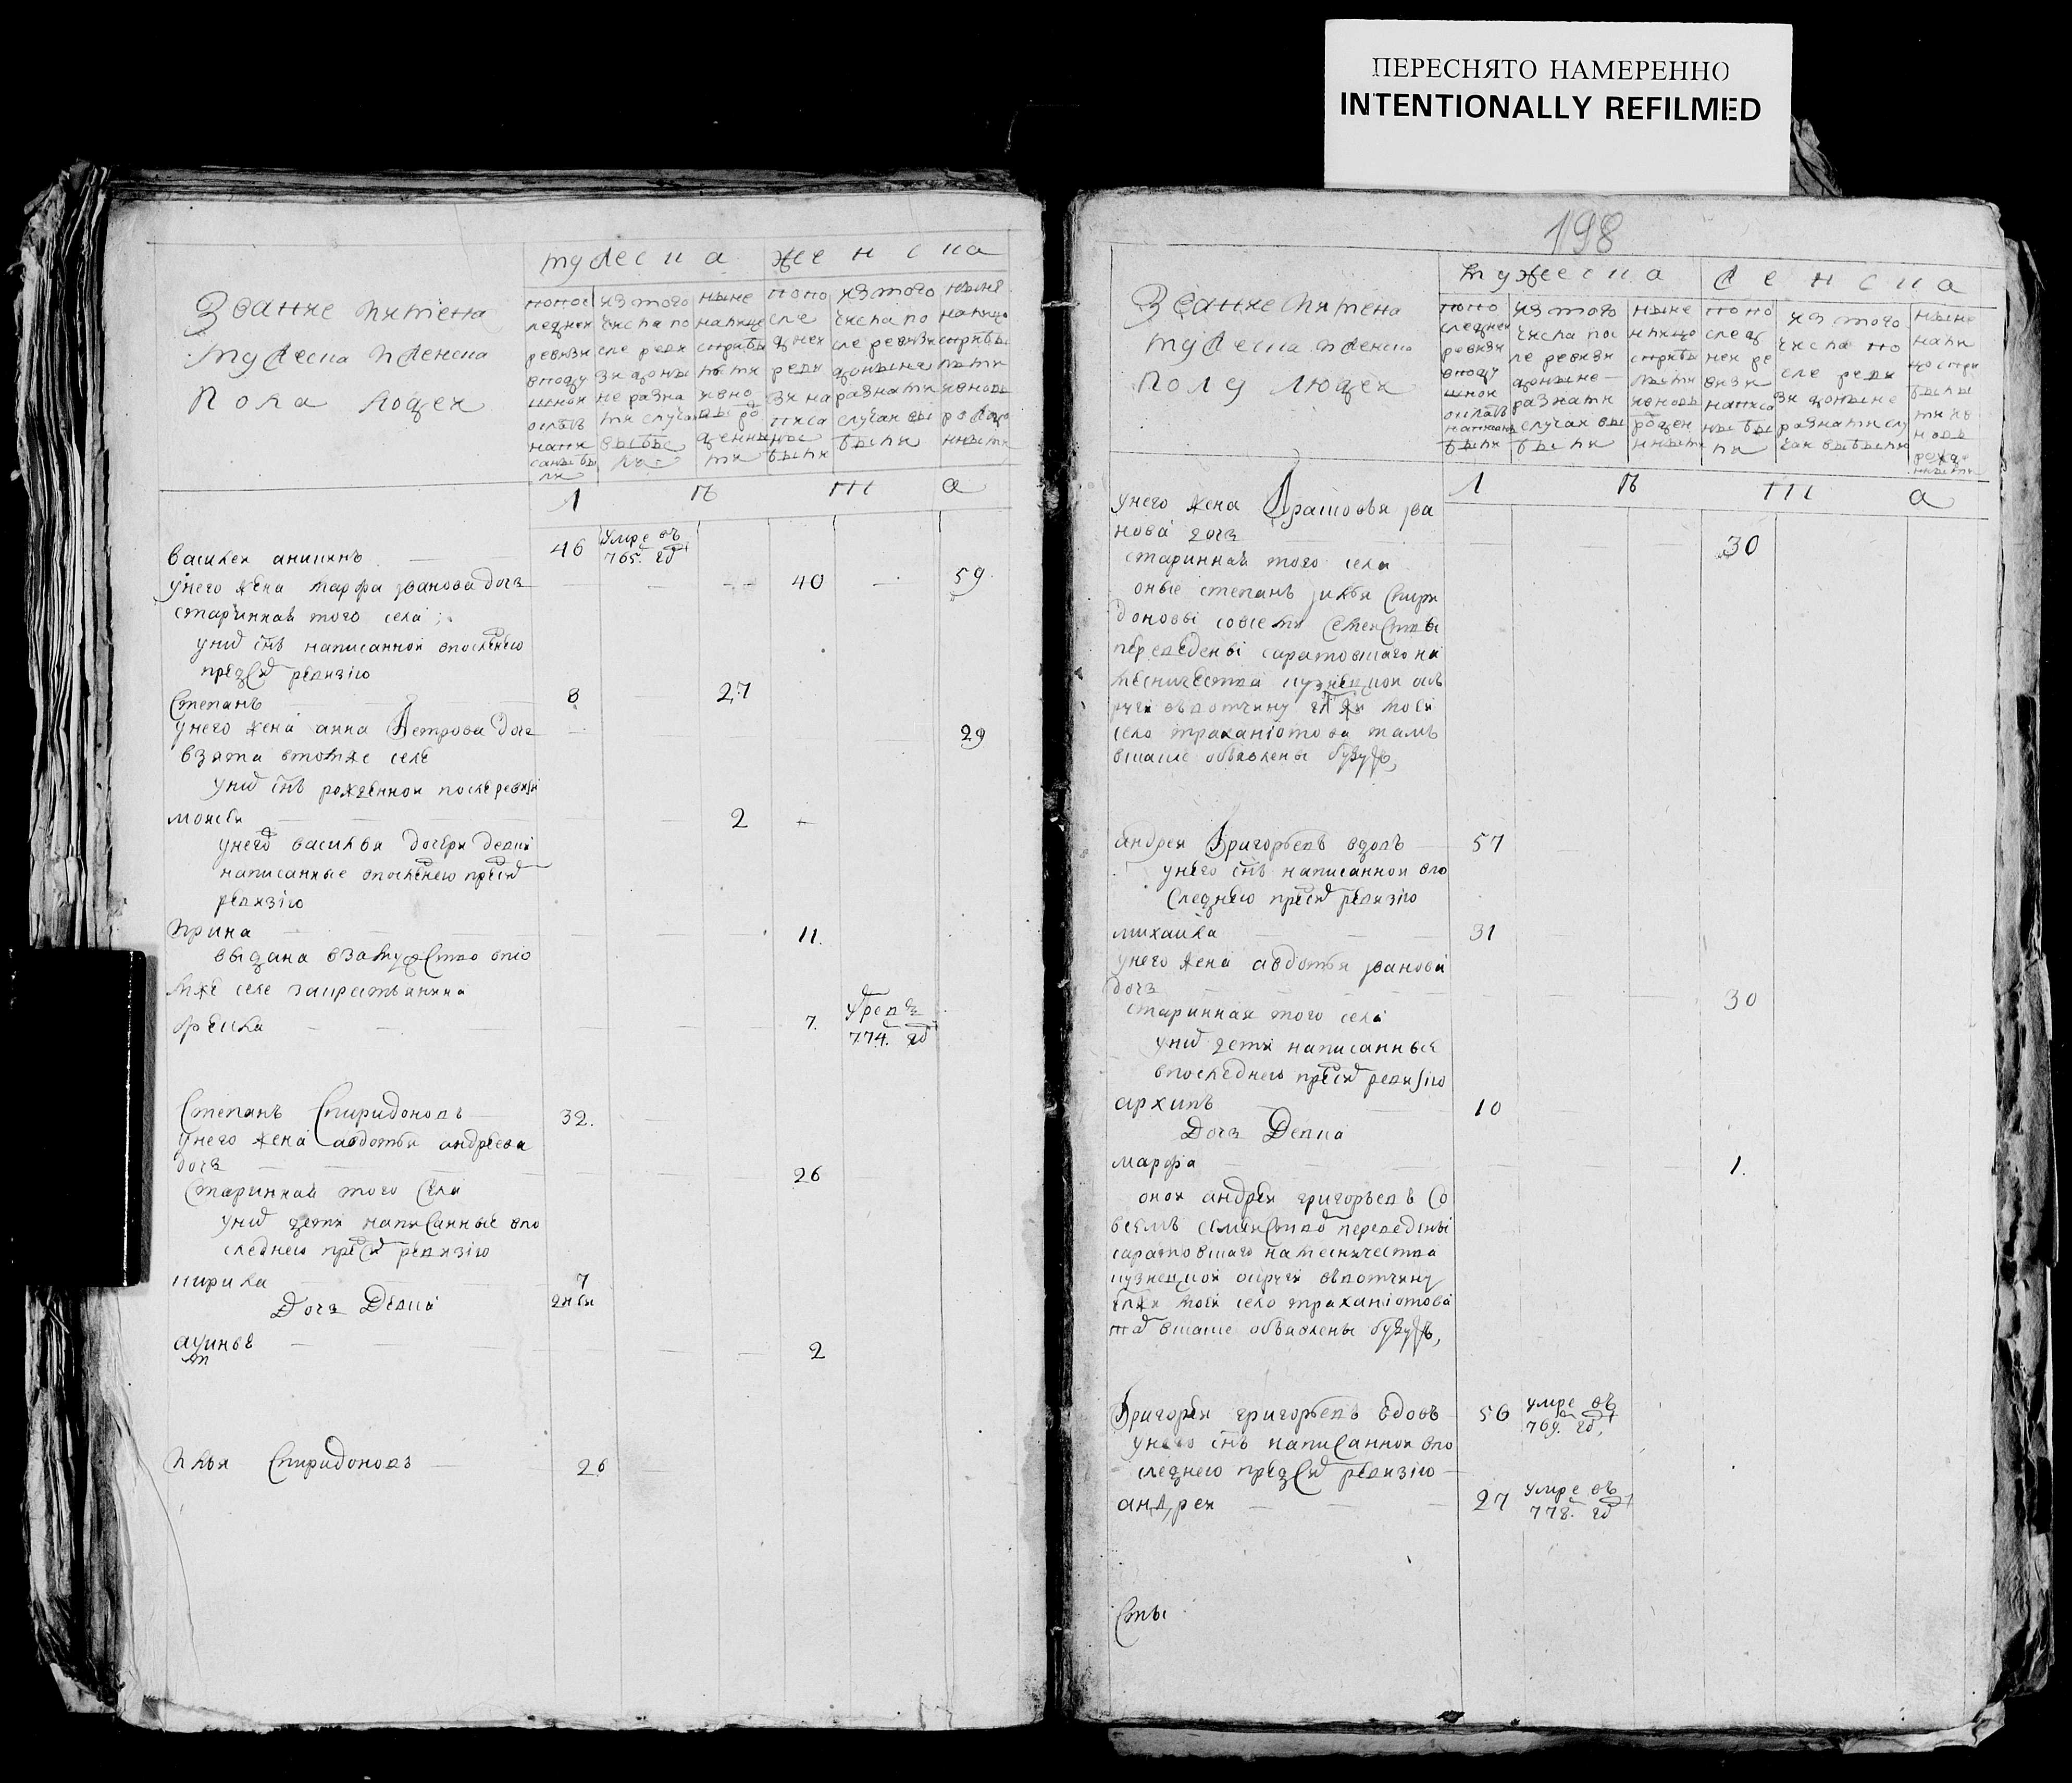 ПЕРЕСНЯТО НАМЕРЕННО
INTENTIONALLY REFILMED
мужеска женска
Звание имена
мужеска и женска
пола людей
по пос
ледней
ревизи
в поду
шной
оклад
напи
саны бы
ли
из того
числа по
сле реви
зи до ны
не разны
ми случаи
выбы
ло
ныне
налице
с прибы
лыми
и вно
вь ро
жденны
ми
по по
сле
дней
реви
зи на
писа
ны
были
из того
числа по
сле ревизи
до ныне
разными
случаи вы
были
ныне
налицо
с прибы
лыми
и вновь
рожде
нными
л ѣ т а
василей аникинъ 46 умре въ 765. год
у него жена марфа иванова дочь 40 59
старинная того села
у них сынъ написанной в последнею
пред сим ревизию
степанъ 8 27
у него жена анна петрова дочь 29
взята в томже селе
у них сынъ рожденной после ревизи
моисей 2
у него василья дочери девки
написанные в последнею пред сим
ревизию
ирина 11.
выдана в замужство в то
мже селе за крестьянина
орешка 7. 774. год
степанъ спиридоновъ 32.
у него жена авдотья андреева
дочь 26
старинная того села
у них дети написанные в по
следнею пред сим ревизию
кирила 7 дней
дочь девка
акулина 2
илья спиридоновъ 26
198
мужеска женска
Звание имена
мужеска и женска
полу людей
по по
следней
ревизи
в поду
шной
окладъ
написаны
были
из того
числа по
сле ревизи
до ныне
разными
случаи вы
были
ныне
налицо
с прибы
лыми
и вновь
рожден
ными
по по
след
ней ре
визи
написа
ны бы
ли
из того
числа по
сле реви
зи до ныне
разными слу
чаи выбыли
ныне
нали
цо с при
былы
ми и в
новь
рожде
нными
л ѣ т а
у него жена прасковья ива
нова дочь 30
старинная того села
оные степанъ илья спири
доновы со всеми семействы
переведены саратовского на
месничества кузнецкой ок
руги в вотчину ея ж моей
село траханиотова тамъ
в сказке объявлены будутъ,
андрей григорьевъ вдовъ 57
у него сынъ написанной в по
следнею пред сим ревизию
михаила 31
у него жена авдотья иванова
дочь 30
старинная того села
у них дети написанные
в последнею пред сим ревизию
архипъ 10
дочь девка
марфа 1.
оной андрей григорьевъ со
всемъ семейством переведены
саратовского намесничества
кузнецкой округи в вотчину
ея ж моей село траханиотова
там в сказке объявлены будутъ,
григорей григорьевъ вдовъ 56 умре въ 769. год,
у него сынъ написанной в по
следнею пред сим ревизию
андрей 27 умре въ 778. год